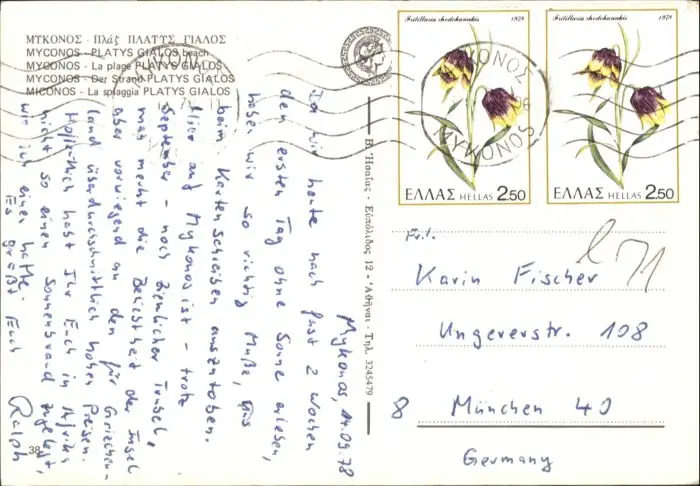 ΜΥΚΟΝΟΣ - Πλάζ ΠΛΑΤΥΣ ΓΙΑΛΟΣ
MYCONOS - PLATYS GIALOS beach
MYCONOS - La plage PLATYS GIALOS
MYCONOS - Der Strand PLATYS GIALOS
MICONOS - La spiaggia PLATYS GIALOS
Mykonos, 14.09.78
Da wir heute nach fast 2 Wochen
den ersten Tag ohne Sonne erleben,
haben wir so richtig Muße, uns
beim Kartenschreiben auszutoben.
Hier auf Mykonos ist - trotz
September - noch ziemlicher Trubel,
man merkt die Beliebtheit der Insel
aber vorwiegend an den für Griechen-
land überdurchschnittlich hohen Preisen.
Hoffentlich habt Ihr Euch in Afrika
nicht so einen Sonnenbrand zugelegt,
wie ich einen hatte.
Es grüßt Euch
Ralph
38
Β. Ἡσαΐας - Εὐπόλιδος 12 - Ἀθῆναι - Τηλ. 3245479
Fritillaria rhodokanakis 1978
ΕΛΛΑΣ HELLAS 2.50
Fritillaria rhodokanakis 1978
ΕΛΛΑΣ HELLAS 2.50
ΜΥΚΟΝΟΣ
MYKONOS
Frl.
Karin Fischer
Ungererstr. 108
8 München 40
Germany